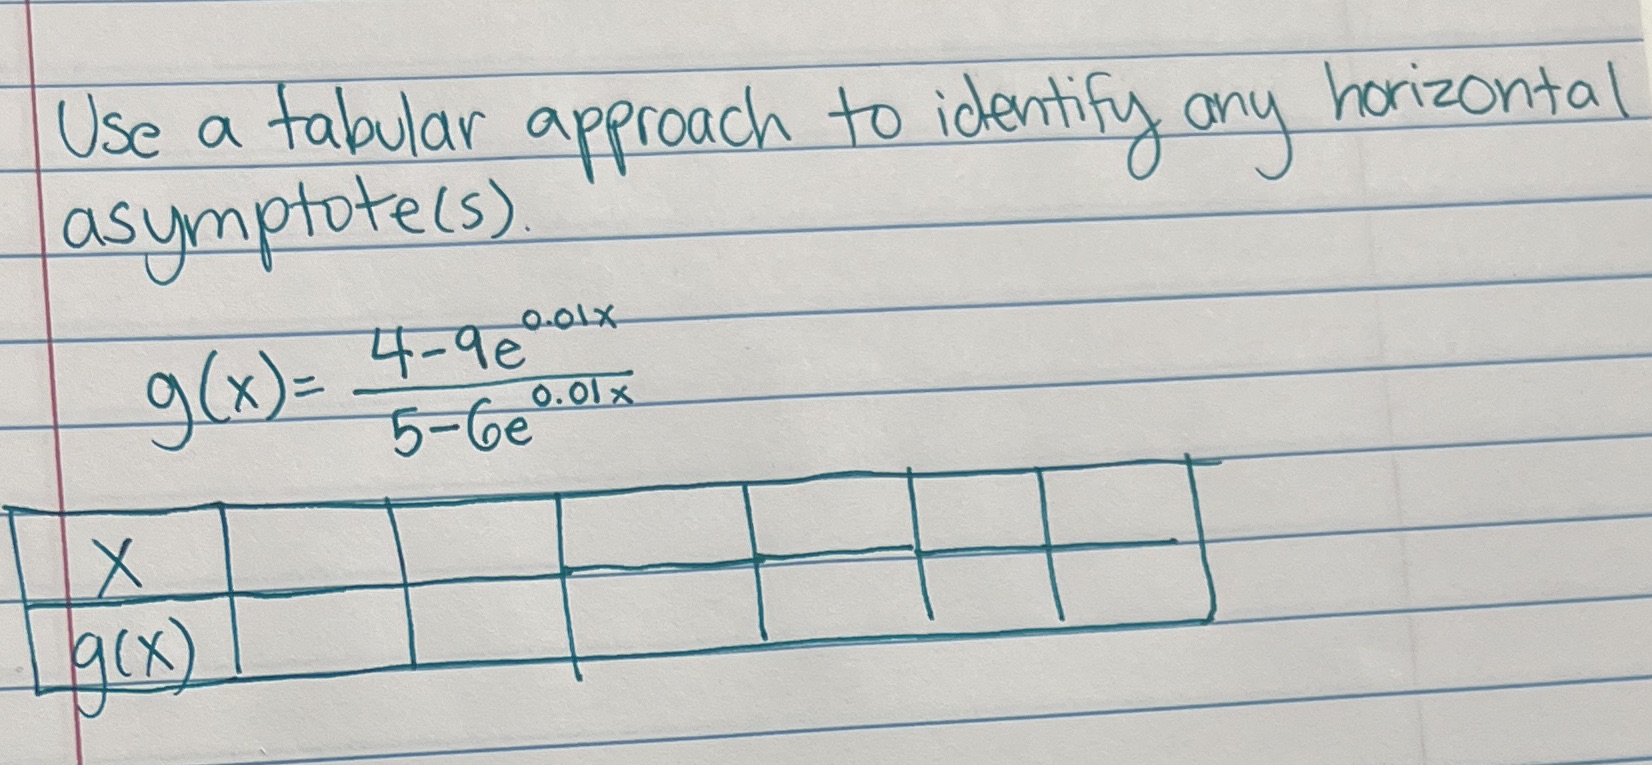 Use a tabular approach to identify any horizontal
asymptote(s).
g(x)= \frac{4-9e^{0.01x}}{5-6e^{0.01x}}
x
g(x)